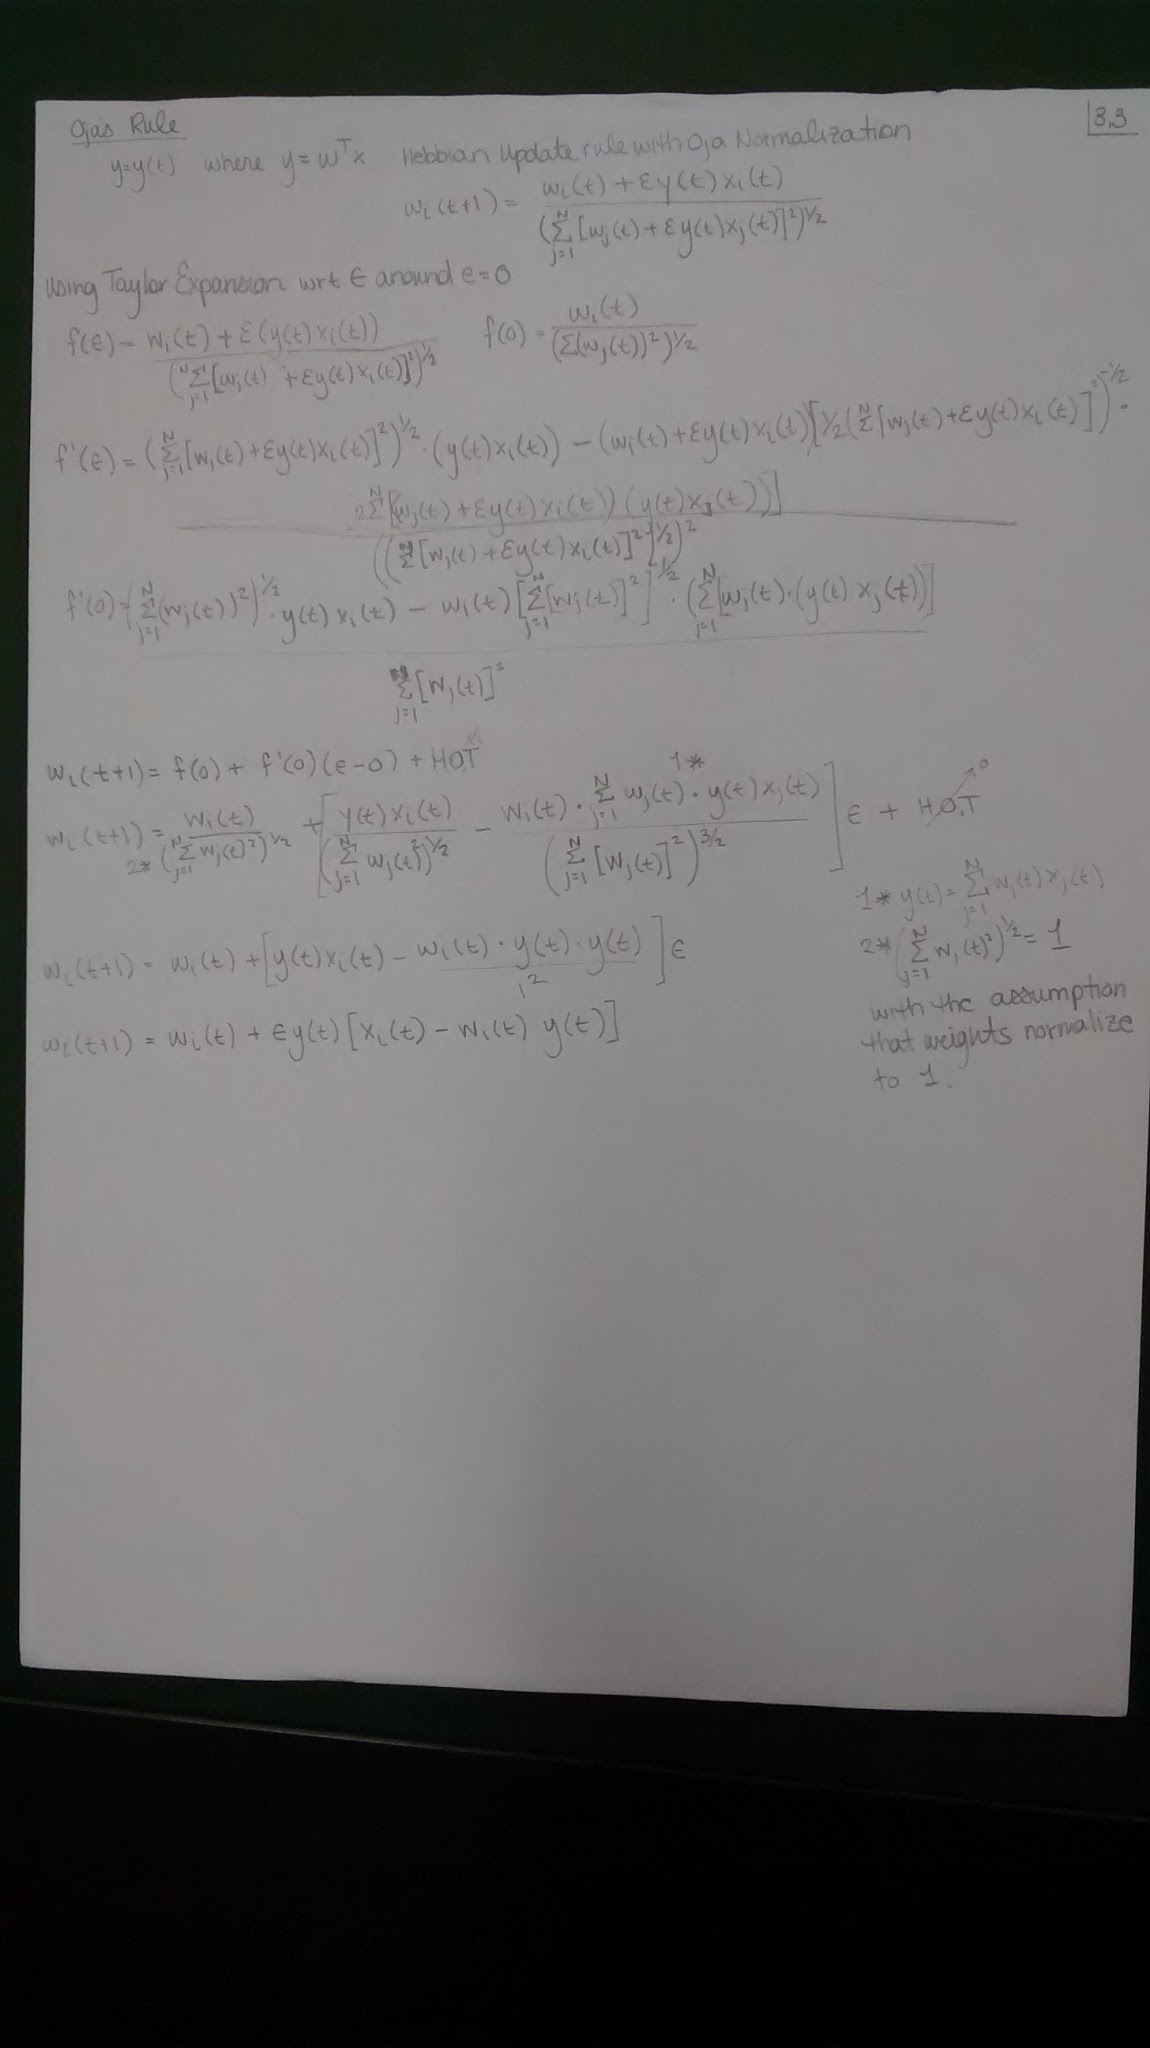 Oja's Rule
3.3
y=y(t) where y = wᵀx Hebbian Update rule with Oja Normalization
wᵢ(t+1) = (wᵢ(t) + εy(t)xᵢ(t)) / (Σ_{j=1}^{N} [wⱼ(t) + εy(t)xⱼ(t)]²)^{1/2}
Using Taylor Expansion wrt ε around ε=0
f(ε) = (wᵢ(t) + ε(y(t)xᵢ(t))) / (Σ_{j=1}^{N} [wⱼ(t) + εy(t)xᵢ(t)]²)^{1/2} f(0) = wᵢ(t) / (Σ(wⱼ(t))²)^{1/2}
f'(ε) = (Σ_{j=1}^{N} [wⱼ(t) + εy(t)xᵢ(t)]²)^{1/2} · (y(t)xᵢ(t)) − (wᵢ(t) + εy(t)xᵢ(t)) [1/2 (Σ_{j=1}^{N} [wⱼ(t) + εy(t)xᵢ(t)]²)^{-1/2} ·
2Σ^{N} [wⱼ(t) + εy(t)xᵢ(t)) (y(t)xⱼ(t))]
((Σ [wⱼ(t) + εy(t)xᵢ(t)]²)^{1/2})²
f'(0) = (Σ_{j=1}^{N} (wⱼ(t))²)^{1/2} · y(t)xᵢ(t) − wᵢ(t) [Σ_{j=1}^{N} [wⱼ(t)]²]^{-1/2} · (Σ_{j=1}^{N} [wⱼ(t) · (y(t)xⱼ(t))]
Σ_{j=1}^{N} [wⱼ(t)]²
wᵢ(t+1) = f(0) + f'(0)(ε−0) + H.O.T
1*
wᵢ(t+1) = wᵢ(t) / 2* (Σ_{j=1}^{N} wⱼ(t)²)^{1/2} + [y(t)xᵢ(t) / (Σ_{j=1}^{N} wⱼ(t)²)^{1/2} − wᵢ(t) · Σ_{j=1}^{N} wⱼ(t) · y(t)xⱼ(t) / (Σ_{j=1}^{N} [wⱼ(t)]²)^{3/2}] ε + H.O.T → 0
1* y(t) = Σ_{j=1}^{N} wⱼ(t)xⱼ(t)
wᵢ(t+1) = wᵢ(t) + [y(t)xᵢ(t) − wᵢ(t) · y(t) · y(t) / 1²] ε
2* (Σ_{j=1}^{N} wⱼ(t)²)^{1/2} = 1
with the assumption
that weights normalize
to 1.
wᵢ(t+1) = wᵢ(t) + εy(t)[xᵢ(t) − wᵢ(t) y(t)]